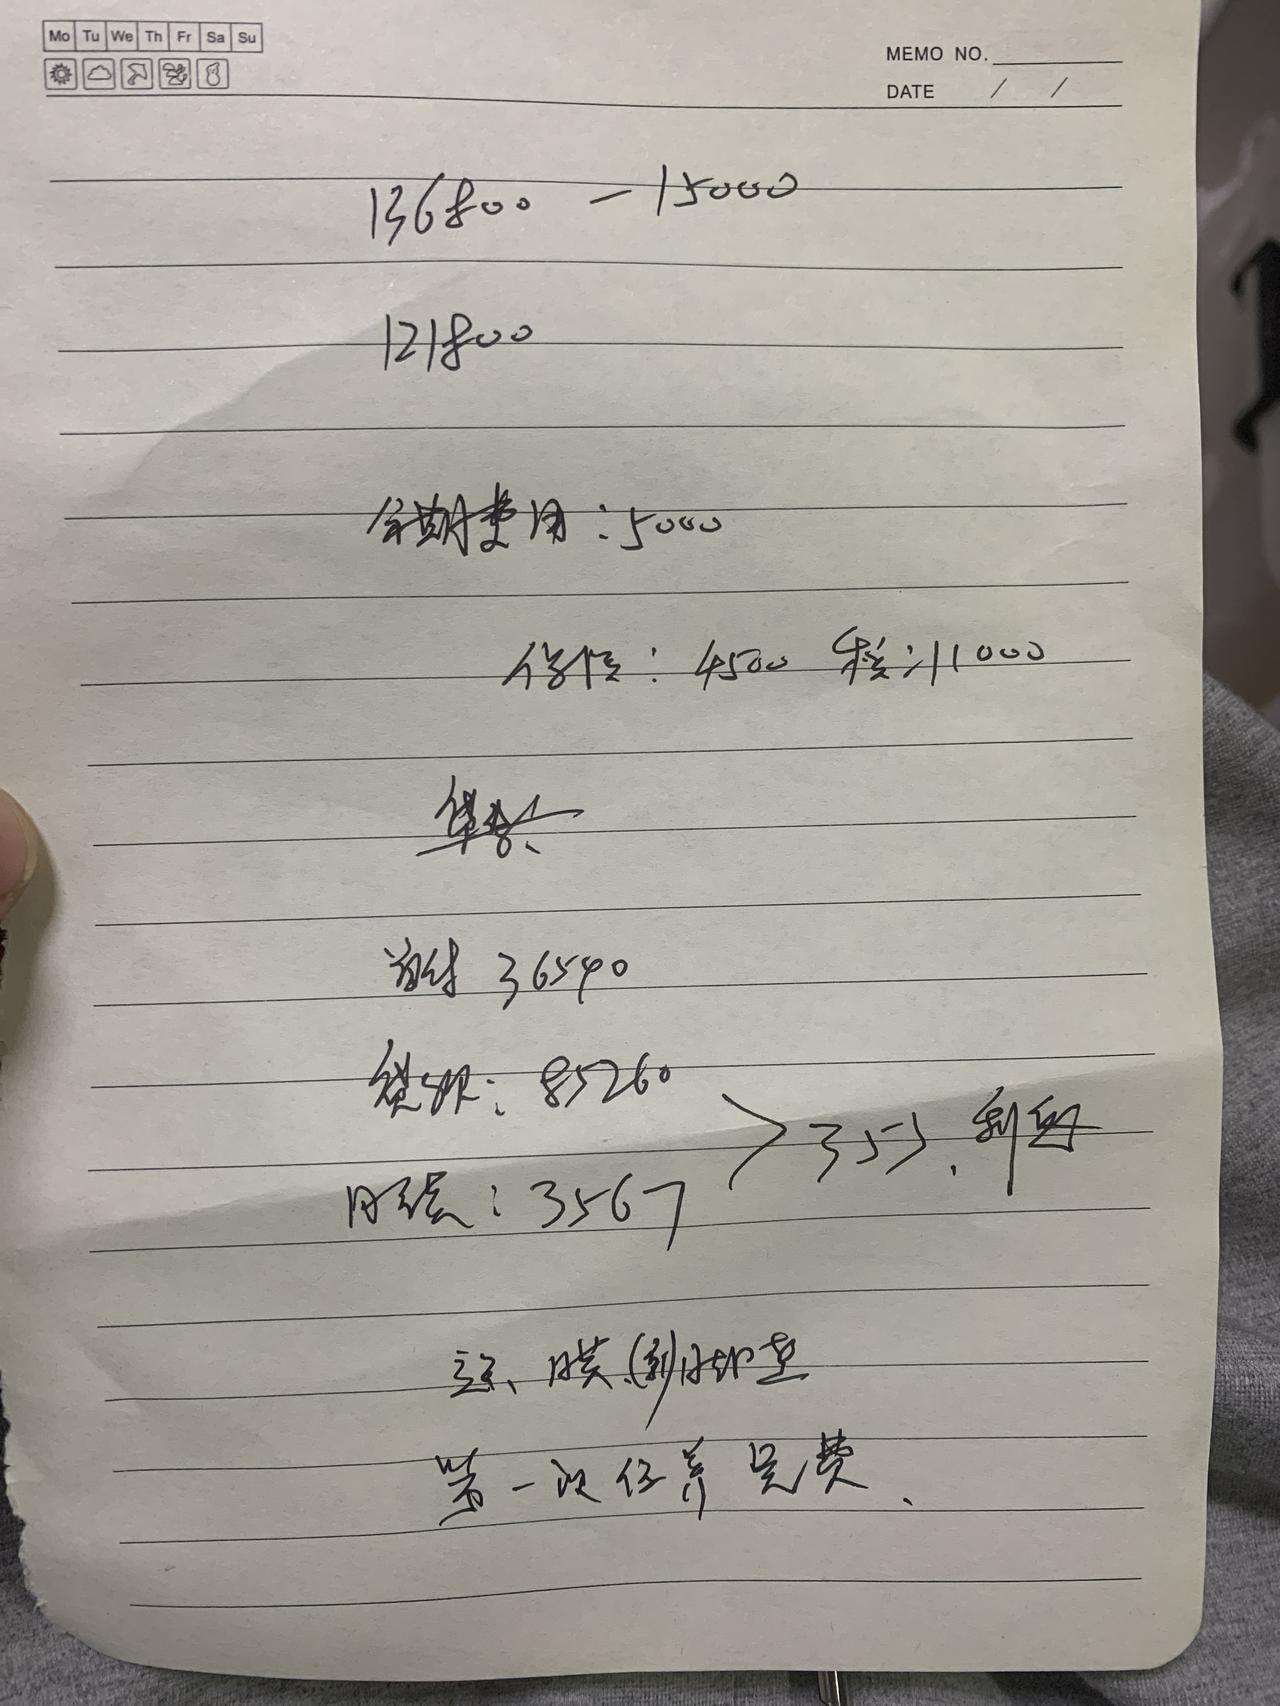 Mo Tu We Th Fr Sa Su
MEMO NO.
DATE / /
136800 - 15000
121800
分期费用:5000
保险: 4500 税:11000
首付 36540
贷款: 85260
月供: 3567 > 3553. 利息
膜、脚垫
第一次保养免费.